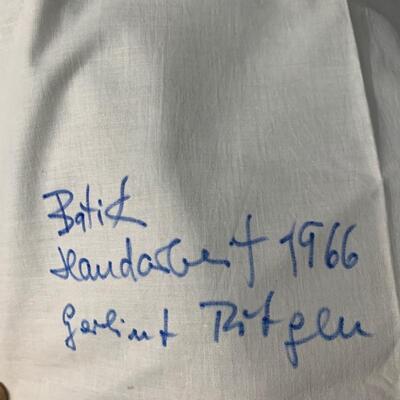 Batik
Handarbeit 1966
Gerlint Rötgen